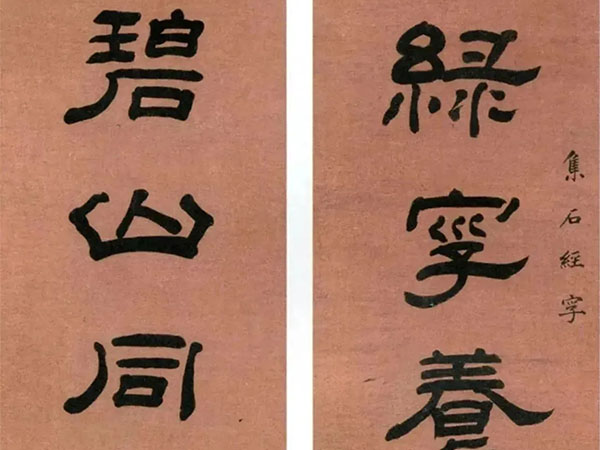 集石經字
綠字養
碧山同